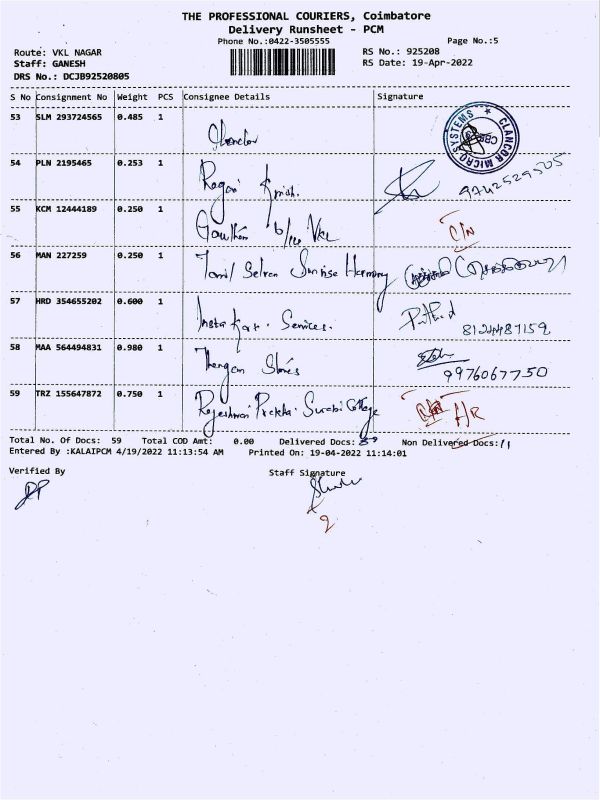 THE PROFESSIONAL COURIERS, Coimbatore
Delivery Runsheet - PCM
Phone No.:0422-3505555
Page No.:5
Route: VKL NAGAR
RS No.: 925208
Staff: GANESH
RS Date: 19-Apr-2022
DRS No.: DCJB92520805
S No Consignment No Weight PCS Consignee Details Signature
53 SLM 293724565 0.485 1
CLANCOR MICRO SYSTEMS ★
CBE
54 PLN 2195465 0.253 1
9742529505
55 KCM 12444189 0.250 1
Gowtham b/14 VKL
C/N
56 MAN 227259 0.250 1 Tamil Selvan Sunrise Harmony
57 HRD 354655202 0.600 1
Insta Kart. Services.
8124487159
58 MAA 564494831 0.980 1
Thangam Stores
9976067750
59 TRZ 155647872 0.750 1
Rajeshwari Prekha. Surabi Cottage
A/R
Total No. Of Docs: 59 Total COD Amt: 0.00 Delivered Docs: Non Delivered Docs:/1
Entered By :KALAIPCM 4/19/2022 11:13:54 AM Printed On: 19-04-2022 11:14:01
Verified By Staff Signature
2